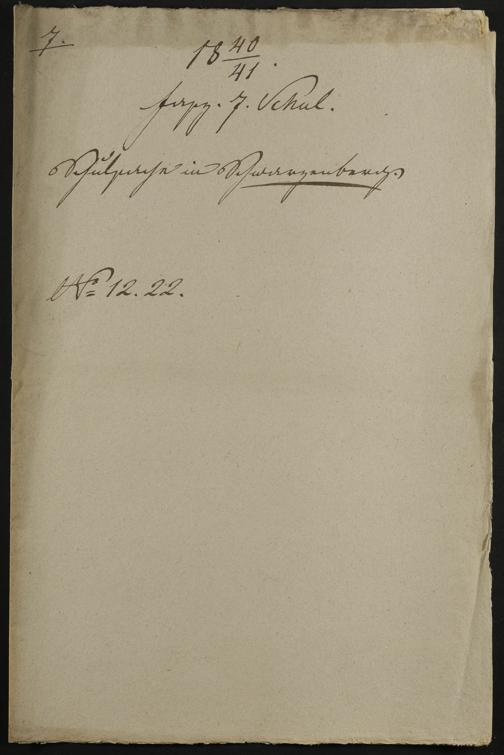 7.
18 40/41.
fasz. 7. Schul.
Schulsache in Schwarzenberg.
No 12. 22.